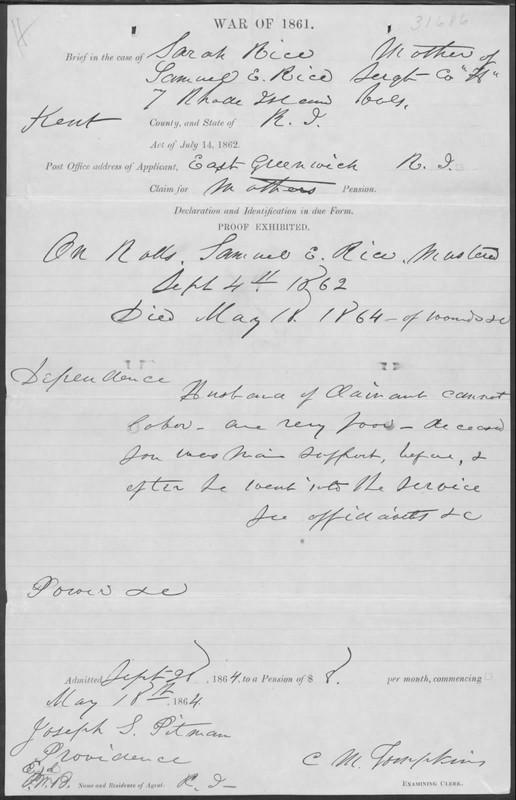 31686
WAR OF 1861.
Brief in the case of Sarah Rice Mother of
Samuel E. Rice Sergt Co "H"
7 Rhode Island Vols,
Kent County, and State of R. I.
Act of July 14, 1862.
Post Office address of Applicant, East Greenwich R. I.
Claim for Mothers Pension.
Declaration and Identification in due Form.
PROOF EXHIBITED.
On Rolls. Samuel E. Rice. Mustered
Sept 4th 1862
Died May 18. 1864 - of wounds &c
Dependence Husband of Claimant cannot
labor - are very poor - deceased
son was main support, before, &
after he went into the service
See affidavits &c
Power &c
Admitted Sept 28, 1864, to a Pension of $ 8. per month, commencing
May 18th, 1864
Joseph S. Pitman
Providence
C M. Tompkins
Name and Residence of Agent. R. I- EXAMINING CLERK.